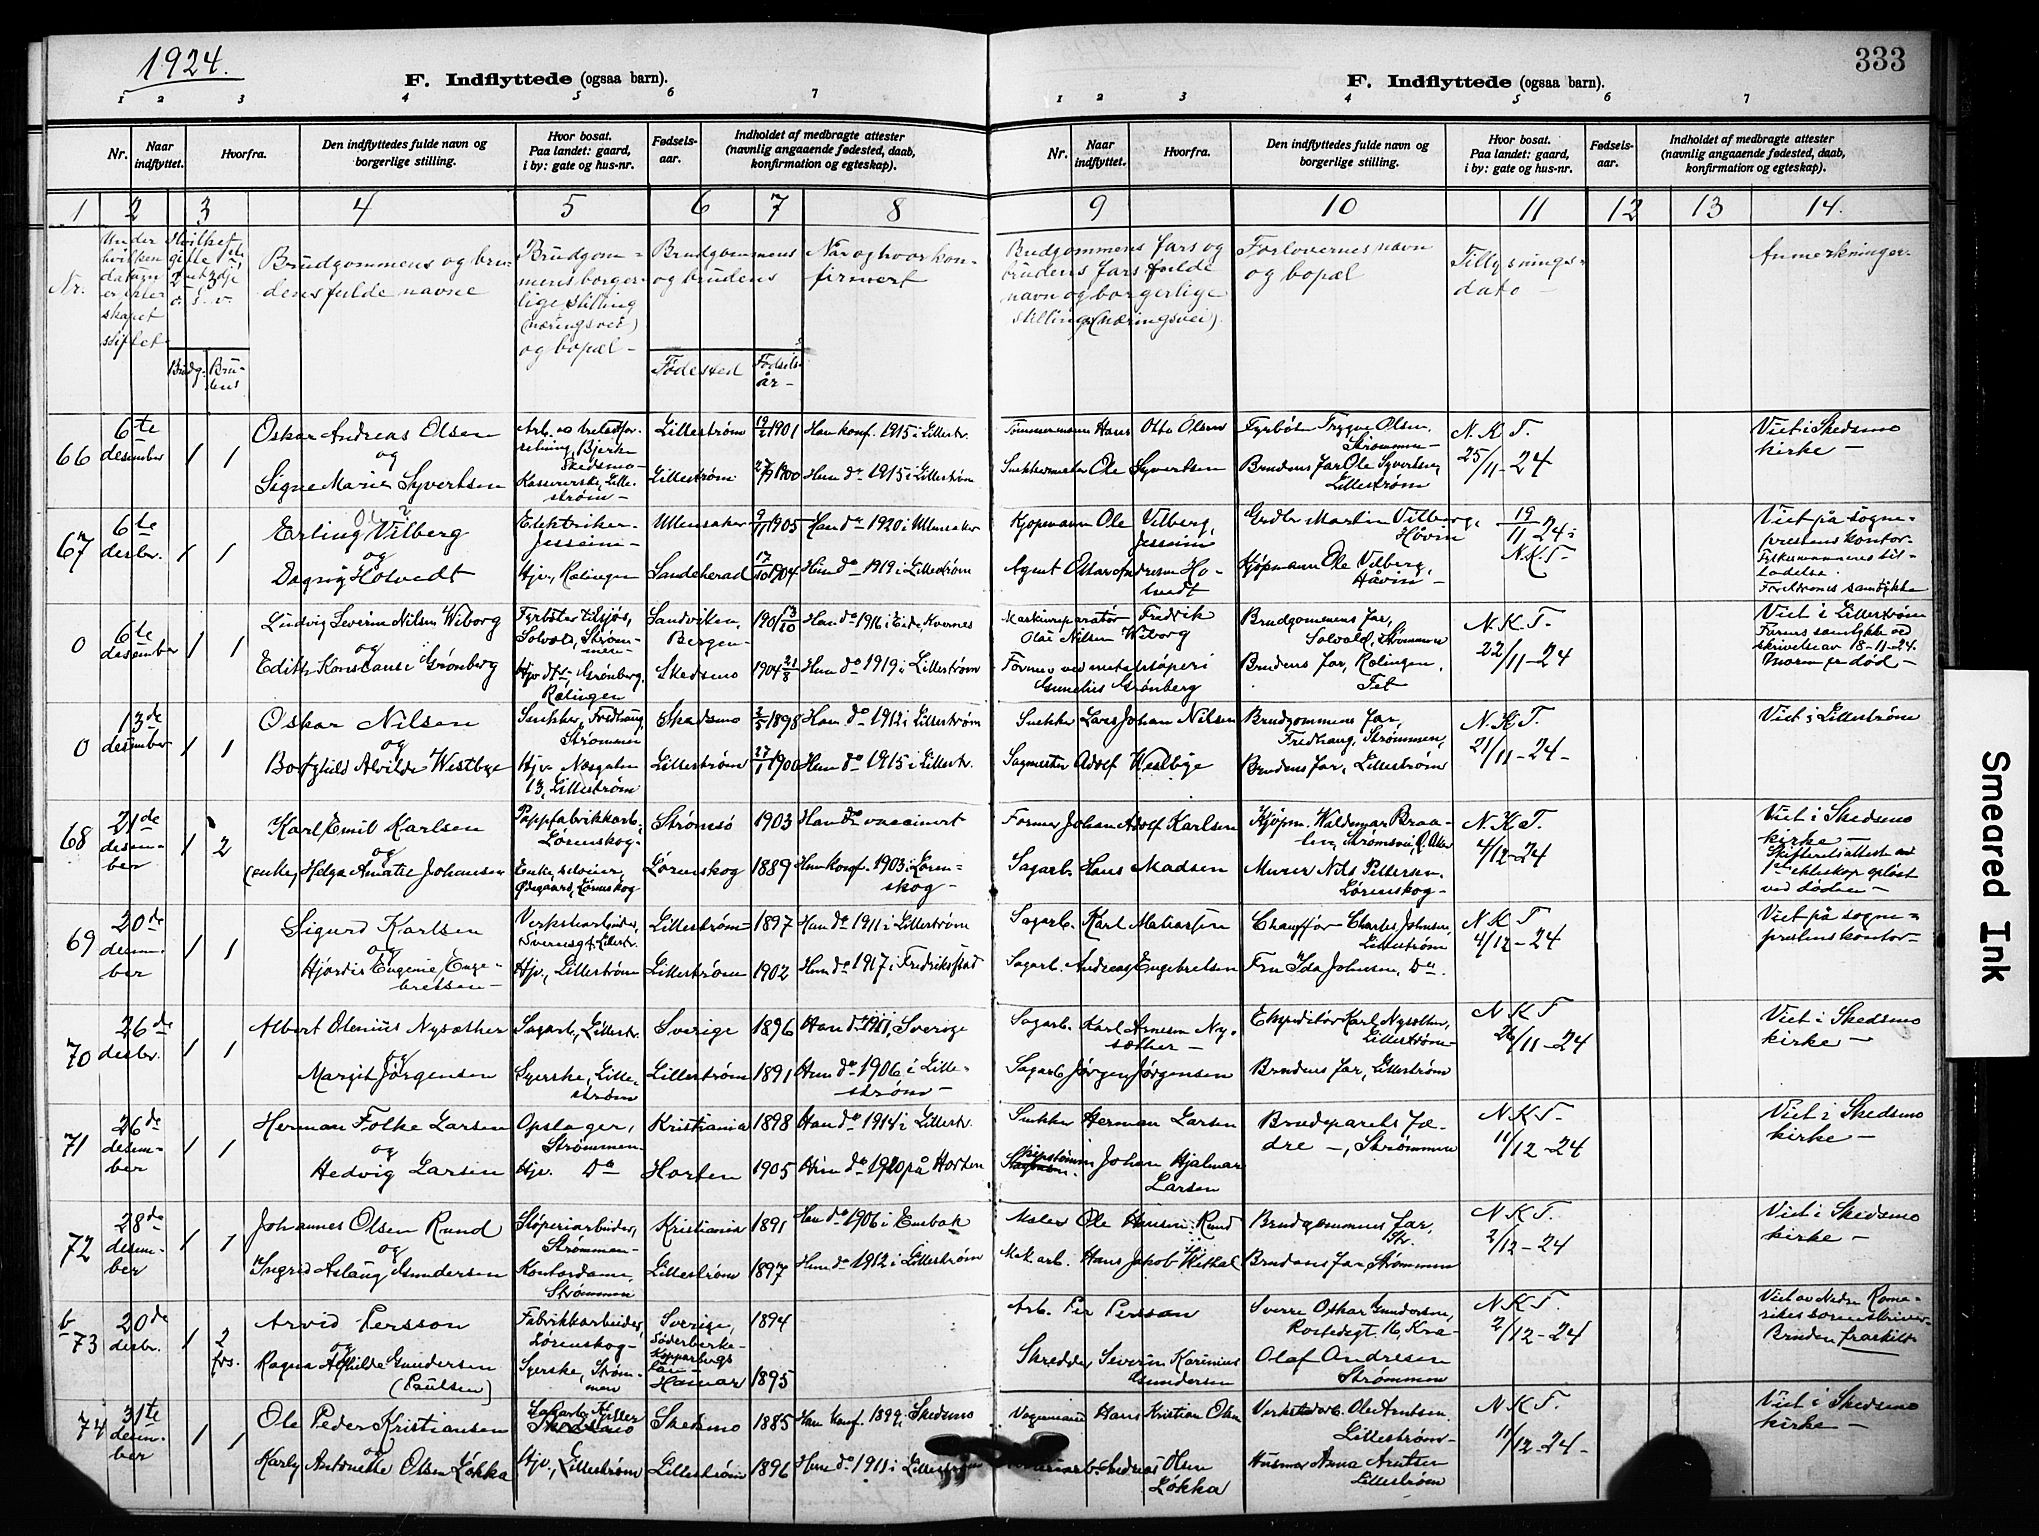 1924.
333
F. Indflyttede (ogsaa barn).
F. Indflyttede (ogsaa barn).
1 2 3 4 5 6 7
1 2 3 4 5 6 7
Nr.
Naar indflyttet.
Hvorfra.
Den indflyttedes fulde navn og borgerlige stilling.
Hvor bosat. Paa landet: gaard, i by: gate og hus-nr.
Fødsels-aar.
Indholdet af medbragte attester (navnlig angaaende fødested, daab, konfirmation og egteskap).
Nr.
Naar indflyttet.
Hvorfra.
Den indflyttedes fulde navn og borgerlige stilling.
Hvor bosat. Paa landet: gaard, i by: gate og hus-nr.
Fødsels-aar.
Indholdet af medbragte attester (navnlig angaaende fødested, daab, konfirmation og egteskap).
1 2 3 4 5 6 7 8 9 10 11 12 13 14.
Nr.
Under hvilken datum er ekteskapet stiftet
Brudg.
Brudens
Brudgommens og brudens fulde navne
Brudgommens borgerlige stilling (næringsvei) og bopæl -
Brudgommens og brudens
Fødested
Fødsels-år -
Når og hvor konfirmert
Brudgommens fars og brudens fars fulde navn og borgerlige stilling (næringsvei).
Forlovernes navn og bopæl
Tillysnings-dato -
Anmerkninger.
66 6te desember 1 1
Oskar Andreas Olsen
og
Signe Marie Syvertsen
Bjerke Skedsmo -
Lillestrøm -
Lillestrøm 1901 Han konf. 1915 i Lillestr.
Lillestrøm 1900 Hun do 1915 i Lillestrøm
Tømmermann Hans Otto Olsen
Snekkermester Ole Syvertsen
Fyrbøt. Trygve Olsen, Strømmen -
Brudens far Ole Syvertsen, Lillestrøm
N. K. T. 25/11 - 24
Viet i Skedsmo kirke -
67 6te desbr. 1 1
Erling Vilberg
og
Dagny Holvedt
Elektriker Jessheim -
Hjv., Rælingen
Ullensaker 9/11 1905 Han do 1920 i Ullensaker
Sandeherad 17/10 1904 Hun do 1919 i Lillestrøm
Kjøpmann Ole Vilberg, Jessheim
Agent Oskar Andreas Holvedt
Martin Vilberg, Hovin
Kjøpmann Ole Vilberg, Håvin -
19/11 24 N. K. T.
Viet på sogneprestens kontor -
Fylkesmannens tilladelse
Foreldrenes samtykke
0 6te desember 1 1
Ludvig Severin Nilsen Wiborg
og
Edith Konstanse Grønberg
Fyrbøter tilsjøs, Solvold, Strømmen
Hjv. Grønberg, Rælingen
Sandviken, Bergen - 1901 13/10 Han do 1916 i Eide, Kvernes
Skedsmo 1904 21/8 Hun do 1919 i Lillestrøm
Fredrik Olai Nilsen Wiborg
Former ved metalstøperi Cornelius Grønberg
Brudgommens far, Solvold, Strømmen
Brudens far, Rælingen, Fet
N. K. T. 22/11 - 24
Viet i Lillestrøm
Farens samtykke ved skrivelse av 18-11-24.
Moren er død -
0 13de desember 1 1
Oskar Nilsen
og
Borghild Alvilde Westbye
Snekker, Fredhaug, Strømmen
Hjv. Næsgaten 13, Lillestrøm
Skedsmo 2/5 1898 Han do 1912 i Lillestrøm
Lillestrøm 27/1 1900 Hun do 1915 i Lillestr.
Snekker Lars Johan Nilsen
Sagmester Adolf Westbye
Brudgommens far, Fredhaug, Strømmen,
Brudens far, Lillestrøm
N. K. T. 21/11 - 24 -
Viet i Lillestrøm
68 21de desember 1 2
Karl Emil Karlsen
og
(enke) Helga Amalie Johansen
Pappfabrikkarb., Lørenskog -
Enke, selveier, Ødegaard, Lørenskog
Strømsø 1903 Han do vaccinert
Lørenskog 1889 Hun konf. 1903 i Lørenskog -
Former Johan Adolf Karlsen
Sagarb. Hans Madsen
Kjøpm. Waldemar Braaten, Strømsvn,
Murer Nils Pettersen, Lørenskog -
N. K. T. 4/12 - 24
Viet i Skedsmo kirke -
Skifteretsattest
1ste ekteskap opløst ved døden -
69 20de desember 1 1
Sigurd Karlsen
og
Hjørdis Eugenie Engebretsen -
Verkstarbeider, Lillestr.
Hjv., Lillestrøm
Lillestrøm - 1897 Han do 1911 i Lillestrøm
Lillestrøm 1902 Hun do 1917 i Fredriksstad
Sagarb. Karl Matiassen
Sagarb. Andreas Engebretsen
Chauffør Charles Johnsen, Lillestrøm
Fru Ida Johnsen, Do.
N. K. T. 4/12 - 24
Viet på sogneprestens kontor -
70 26de desbr. 1 1
Albert Olenius Nysæther
og
Margit Jørgensen
Sagarb., Lillestr.
Syerske, Lillestrøm
Sverige 1896 Han do 1911, Sverige
Lillestrøm 1891 Hun do 1906 i Lillestrøm -
Sagarb. Karl Arnesen Nysæther -
Sagarb. Jørgen Jørgensen
Ekspeditør Karl Nysæther, Lillestrøm -
Brudens far, Lillestrøm
N K T 26/11 - 24
Viet i Skedsmo kirke -
71 26de desember 1 1
Herman Folke Larsen
og
Hedvig Larsen
Opslager, Strømmen
Hjv. Do
Kristiania 1898 Han do 1914 i Lillestr.
Horten 1905 Hun do 1920 på Horten
Snekker Herman Larsen
Skipstømm. Johan Hjalmar Larsen
Brudeparets fædre -, Strømmen
N. K. T. - 11/12 - 24
Viet i Skedsmo kirke -
72 28de desember 1 1
Johannes Olsen Rund
og
Ingrid Aslaug Gundersen
Støperiarbeider, Strømmen -
Kontordame, Strømmen
Kristiania 1891 Han do 1906 i Enebak
Lillestrøm 1897 Hun do 1912 i Lillestrøm
Maler Ole Hansen Rund
Mek arb. Hans Jakob Withal
Brudgommens far, Str.
Brudens far, Strømmen
N. K. T. 2/12 - 24
Viet i Skedsmo kirke -
b 73 20de desbr. 1 2 frs.
Arvid Persson
og
Ragna Alfhilde Gundersen (Paulsen)
Fabrikkarbeider, Lørenskog -
Syerske, Strømmen
Sverige, Söderberke - Kopparbergs län 1894
Hamar 1895
Arb. Per Persson
Skredder Severin Karinius Gundersen
Sverre Oskar Gundersen, Rostedsgt. 16, Kra -
Olaf Andresen Strømmen
N. K. T. 2/12 - 24
Viet av Nedre Romerikes sorenskriver
Bruden fraskilt
74 31te desember 1 1
Ole Peder Kristiansen
og
Karly Antonette Olsen Løkka
Hjv., Lillestrøm
Skedsmo 1885 Han konf. 1899 i Skedsmo
Lillestrøm 1896 Hun do 1911 i Lillestrøm
Hans Kristian Olsen
Andreas Olsen Løkka
Verkstedarb. Ole Arntsen. Lillestrøm -
Husmor Anna Arntsen Lillestrøm
N. K. T. 11/12 - 24 -
Viet i Skedsmo kirke -
Smeared Ink